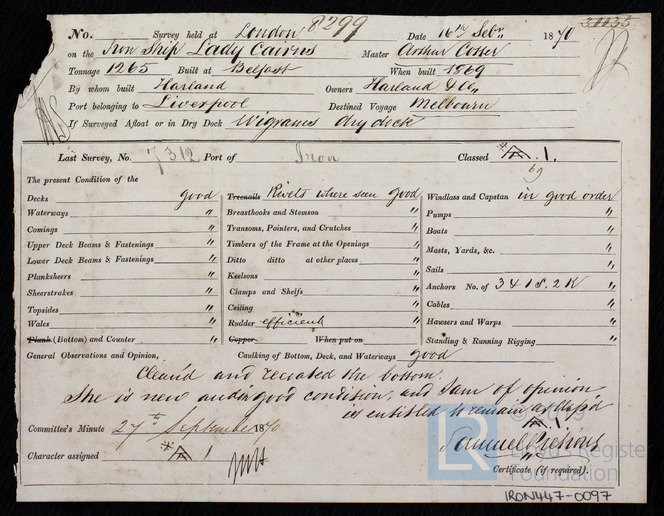 No. 8299 Survey held at London Date 16th Sebr 1870
on the Iron Ship Lady Cairns Master Arthur Cotter
Tonnage 1265 Built at Belfast When built 1869
By whom built Harland Owners Harland & Co
Port belonging to Liverpool Destined Voyage Melbourn
If Surveyed Afloat or in Dry Dock Wigrams dry dock
Last Survey, No. 7312 Port of Iron Classed A. 1.
69
The present Condition of the
Decks good Treenails Rivets where seen good Windlass and Capstan in good order
Waterways " Breasthooks and Stemson " Pumps "
Comings " Transoms, Pointers, and Crutches " Boats "
Upper Deck Beams & Fastenings " Timbers of the Frame at the Openings " Masts, Yards, &c. "
Lower Deck Beams & Fastenings " Ditto ditto at other places " Sails "
Planksheers " Keelsons " Anchors No. of 3 4 1 S. 2 K "
Sheerstrakes " Clamps and Shelfs " Cables "
Topsides " Ceiling " Hawsers and Warps "
Wales " Rudder efficient Standing & Running Rigging "
Plank (Bottom) and Counter " Copper When put on
General Observations and Opinion, Caulking of Bottom, Deck, and Waterways good
Clean'd and recoated the bottom.
She is new and in good condition, and I am of opinion
is entitled to remain as Class'd
A 1
Committee's Minute 27th September 1870
Character assigned A 1
Samuel
Certificate (if required).
LR
Lloyd's Register
Foundation
IRON447-0097